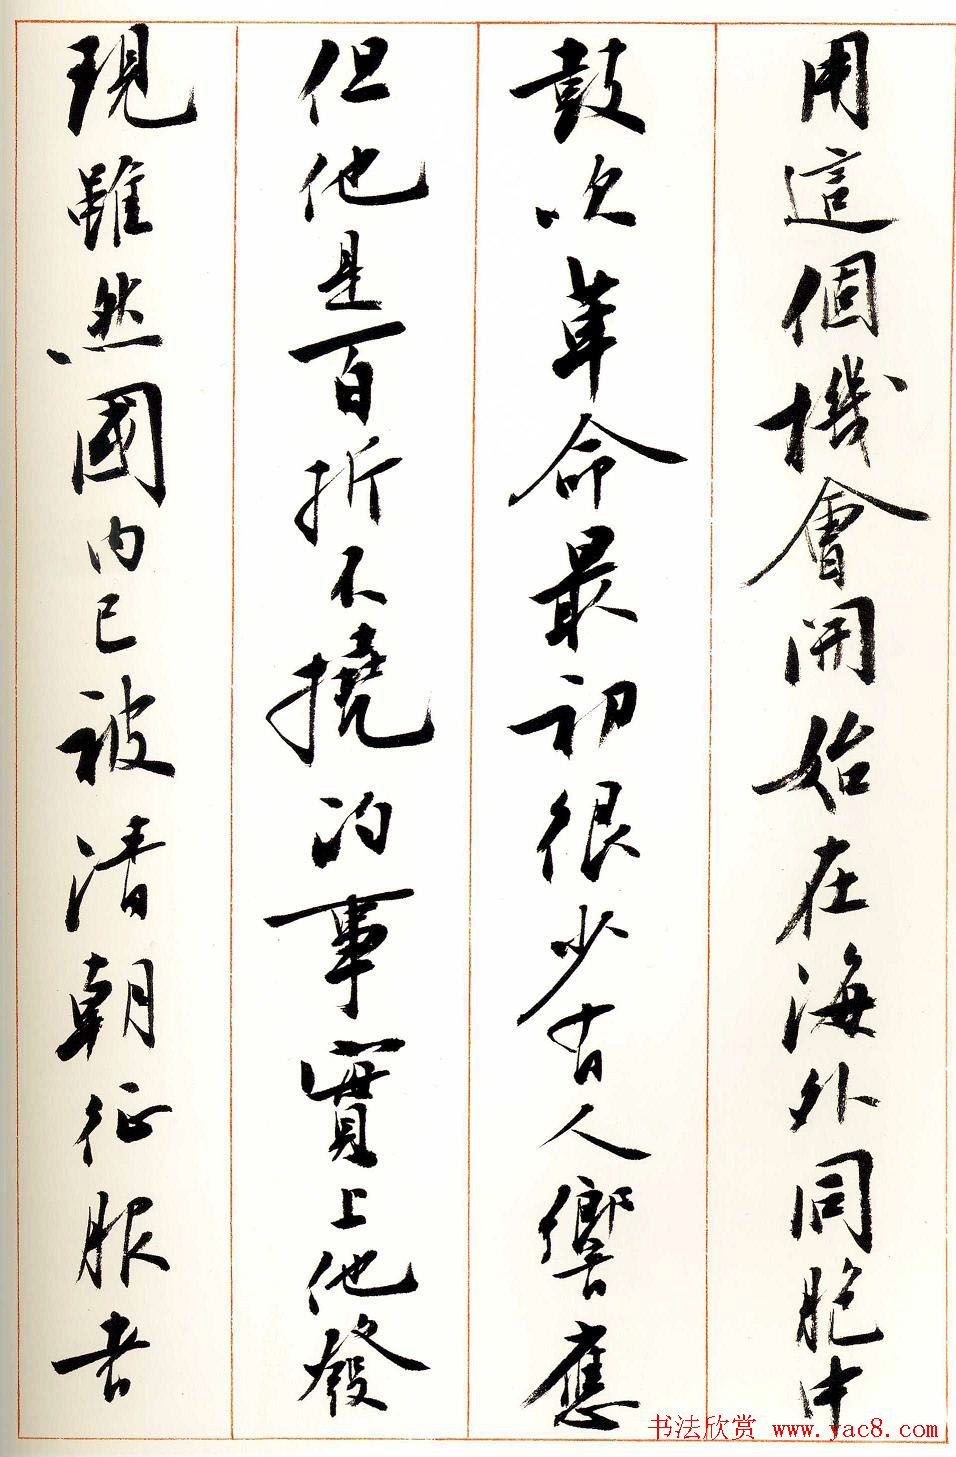 用這個機會開始在海外同胞中
鼓次革命最初很少有人響應
但他是百折不撓的事實上他發
現雖然國内已被清朝征服者
书法欣赏 www.yac8.com